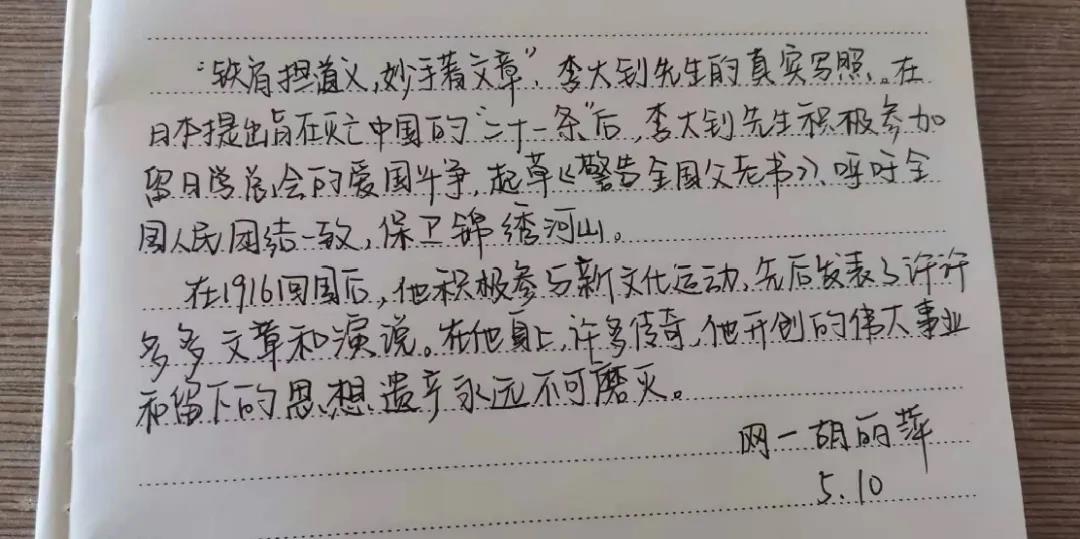 “铁肩担道义,妙手著文章”,李大钊先生的真实写照。在
日本提出旨在灭亡中国的“二十一条”后,李大钊先生积极参加
留日学总会的爱国斗争,起草《警告全国父老书》、呼吁全
国人民团结一致,保卫锦绣河山。
在1916回国后,他积极参与新文化运动,先后发表了许许
多多文章和演说。在他身上,许多传奇,他开创的伟大事业
和留下的思想遗产永远不可磨灭。
网一胡丽萍
5.10